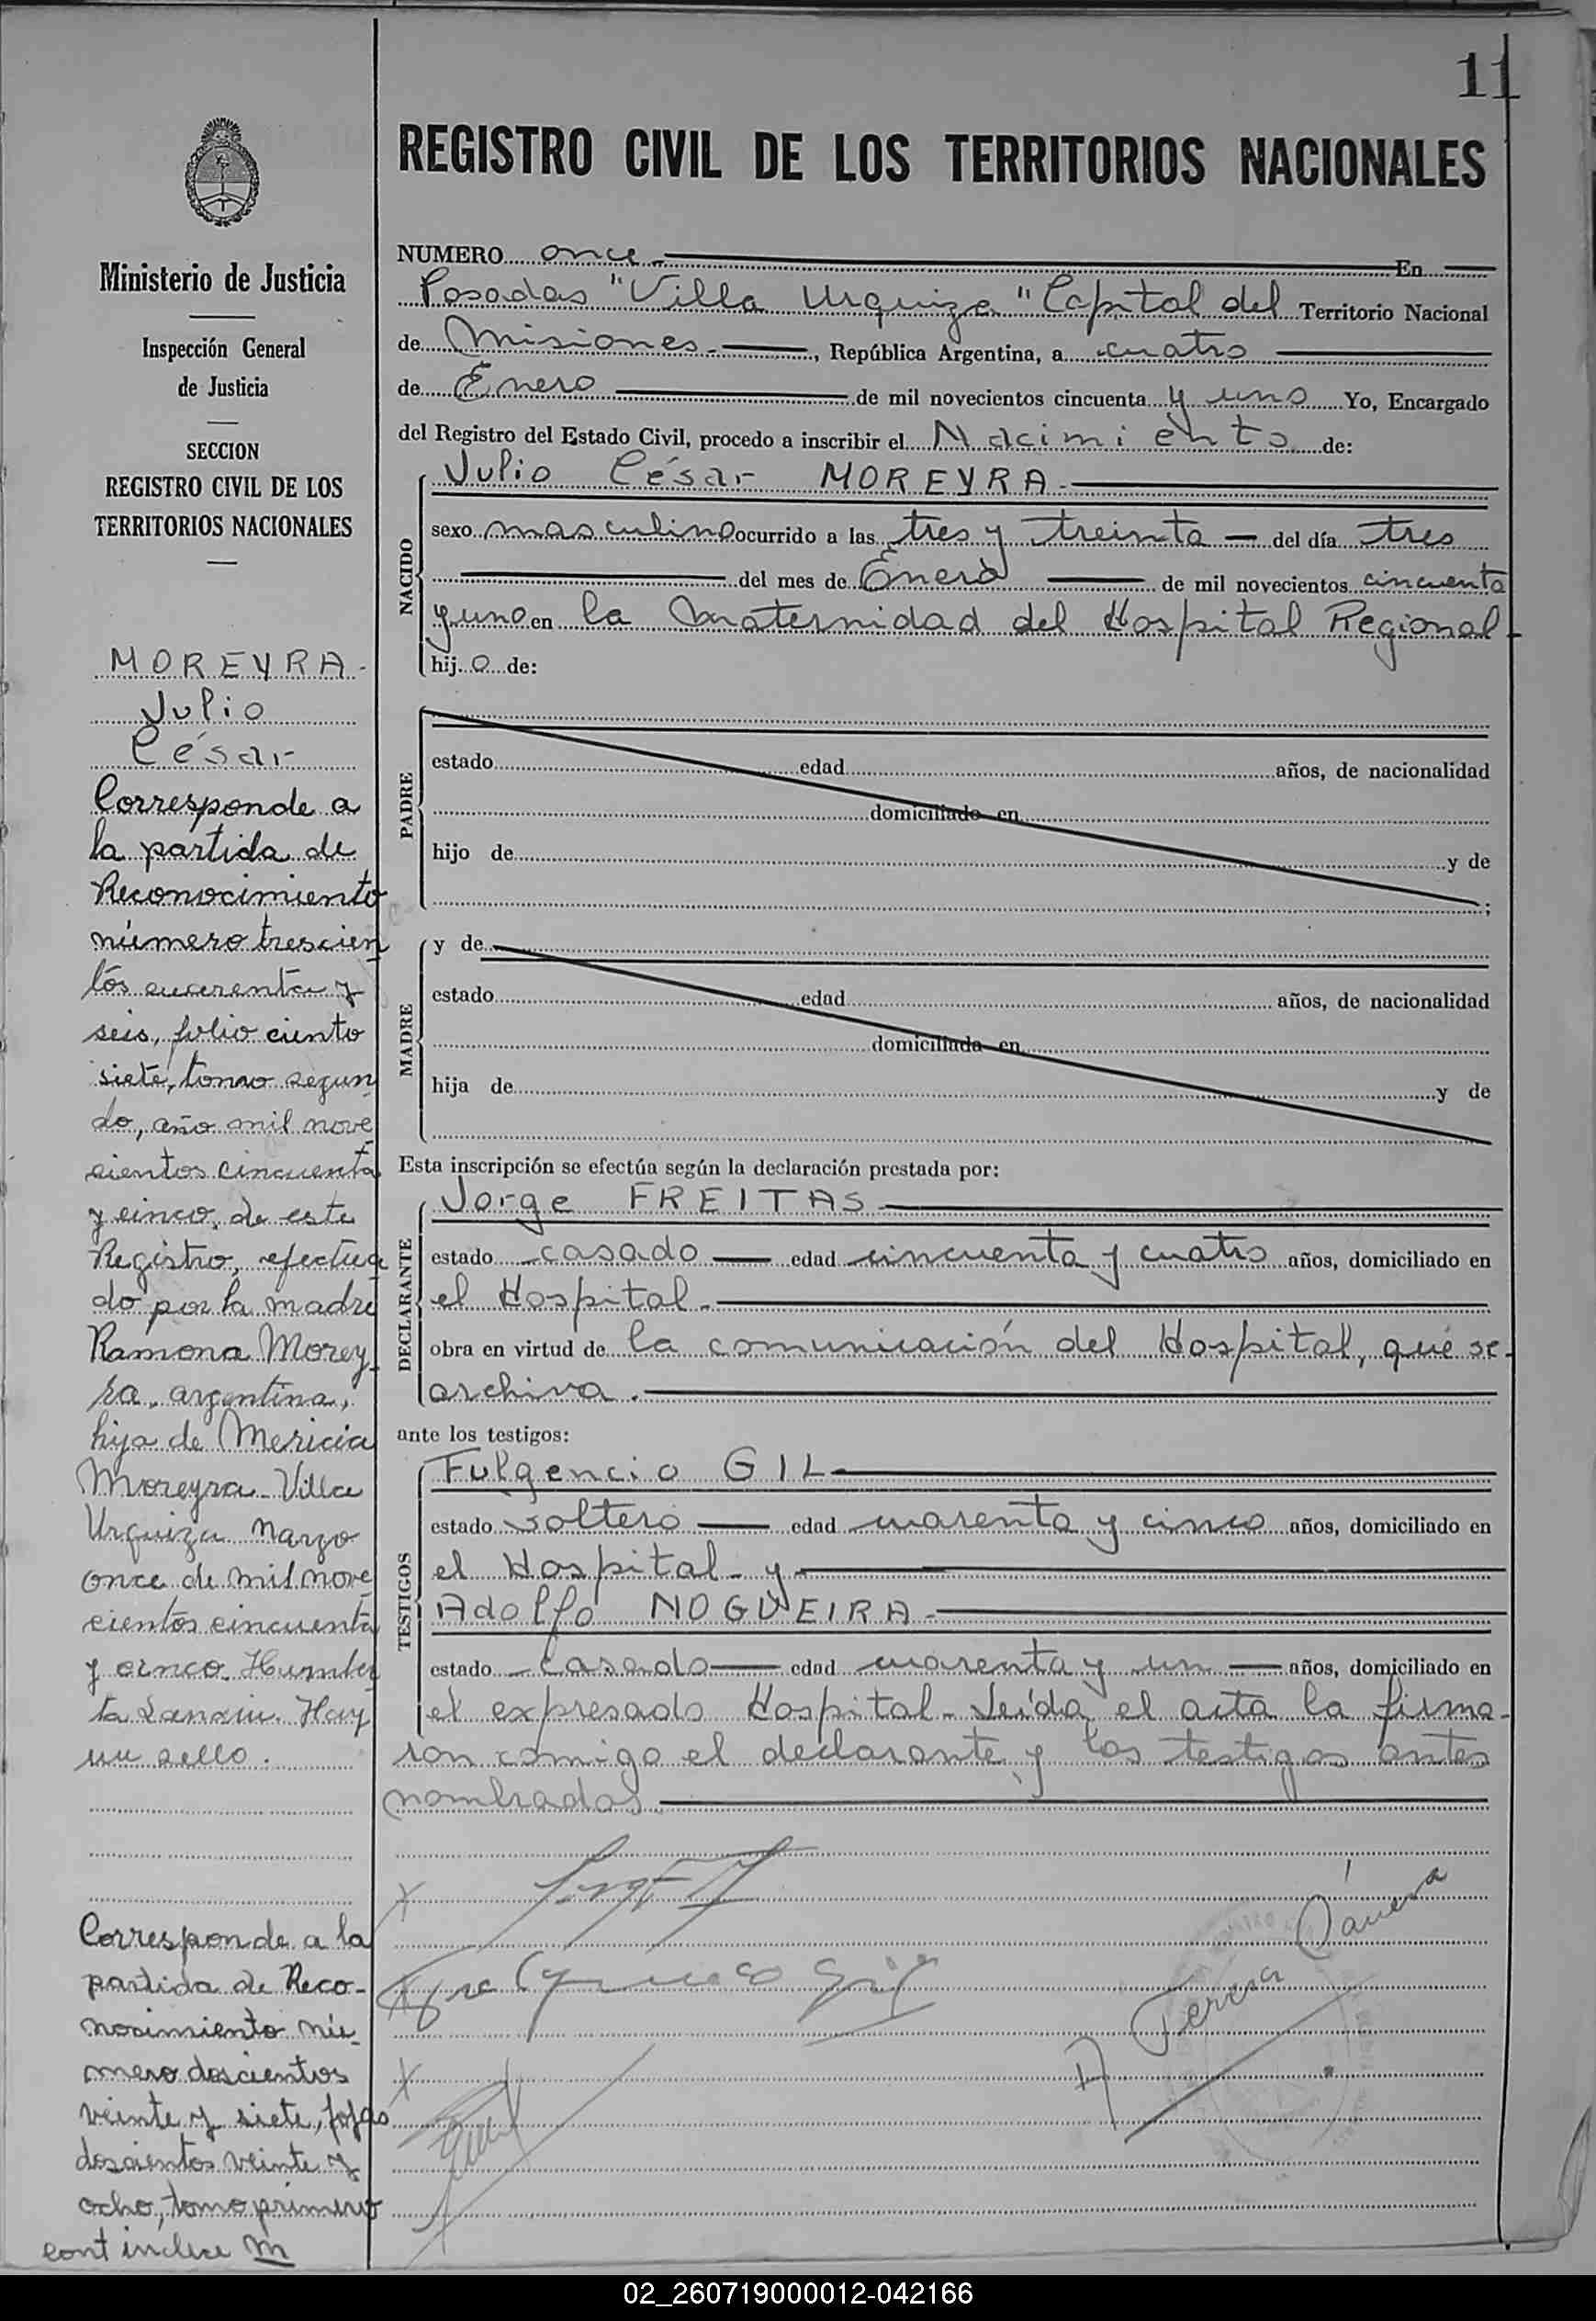 11
REGISTRO CIVIL DE LOS TERRITORIOS NACIONALES
Ministerio de Justicia
Inspección General
de Justicia
SECCION
REGISTRO CIVIL DE LOS
TERRITORIOS NACIONALES
MOREYRA
Julio
César
Corresponde a
la partida de
Reconocimiento
número trescien
tos cuarenta y
seis, folio ciento
siete, tomo segun
do, año mil nove
cientos cincuenta
y cinco, de este
Registro, efectua
do por la madre
Ramona Morey
ra, argentina,
hija de Mericia
Moreyra - Villa
Urquiza Marzo
once de mil nove
cientos cincuenta
y cinco. Hay
un sello.
Corresponde a la
partida de Reco-
nocimiento nú-
mero doscientos
veinte y siete, fojas
doscientos veinte y
ocho, tomo primero
NUMERO once - En
Posadas "Villa Urquiza" Capital del Territorio Nacional
de Misiones - , República Argentina, a cuatro
de Enero de mil novecientos cincuenta y uno Yo, Encargado
del Registro del Estado Civil, procedo a inscribir el Nacimiento de:
NACIDO
Julio César MOREYRA -
sexo masculino ocurrido a las tres y treinta - del día tres
del mes de Enero de mil novecientos cincuenta
y uno en la Maternidad del Hospital Regional -
hijo de:
PADRE
estado edad años, de nacionalidad
domiciliado en
hijo de y de
;
MADRE
y de
estado edad años, de nacionalidad
domiciliada en
hija de y de
Esta inscripción se efectúa según la declaración prestada por:
DECLARANTE
Jorge FREITAS
estado casado edad cincuenta y cuatro años, domiciliado en
el Hospital -
obra en virtud de la comunicación del Hospital, que se
archiva.
ante los testigos:
TESTIGOS
Fulgencio GIL
estado soltero edad cuarenta y cinco años, domiciliado en
el Hospital - y
Adolfo NOGUEIRA -
estado casado edad cuarenta y un años, domiciliado en
el expresado Hospital - Leída el acta la firma-
ron comigo el declarante y los testigos antes
nombrados.
02_260719000012-042166